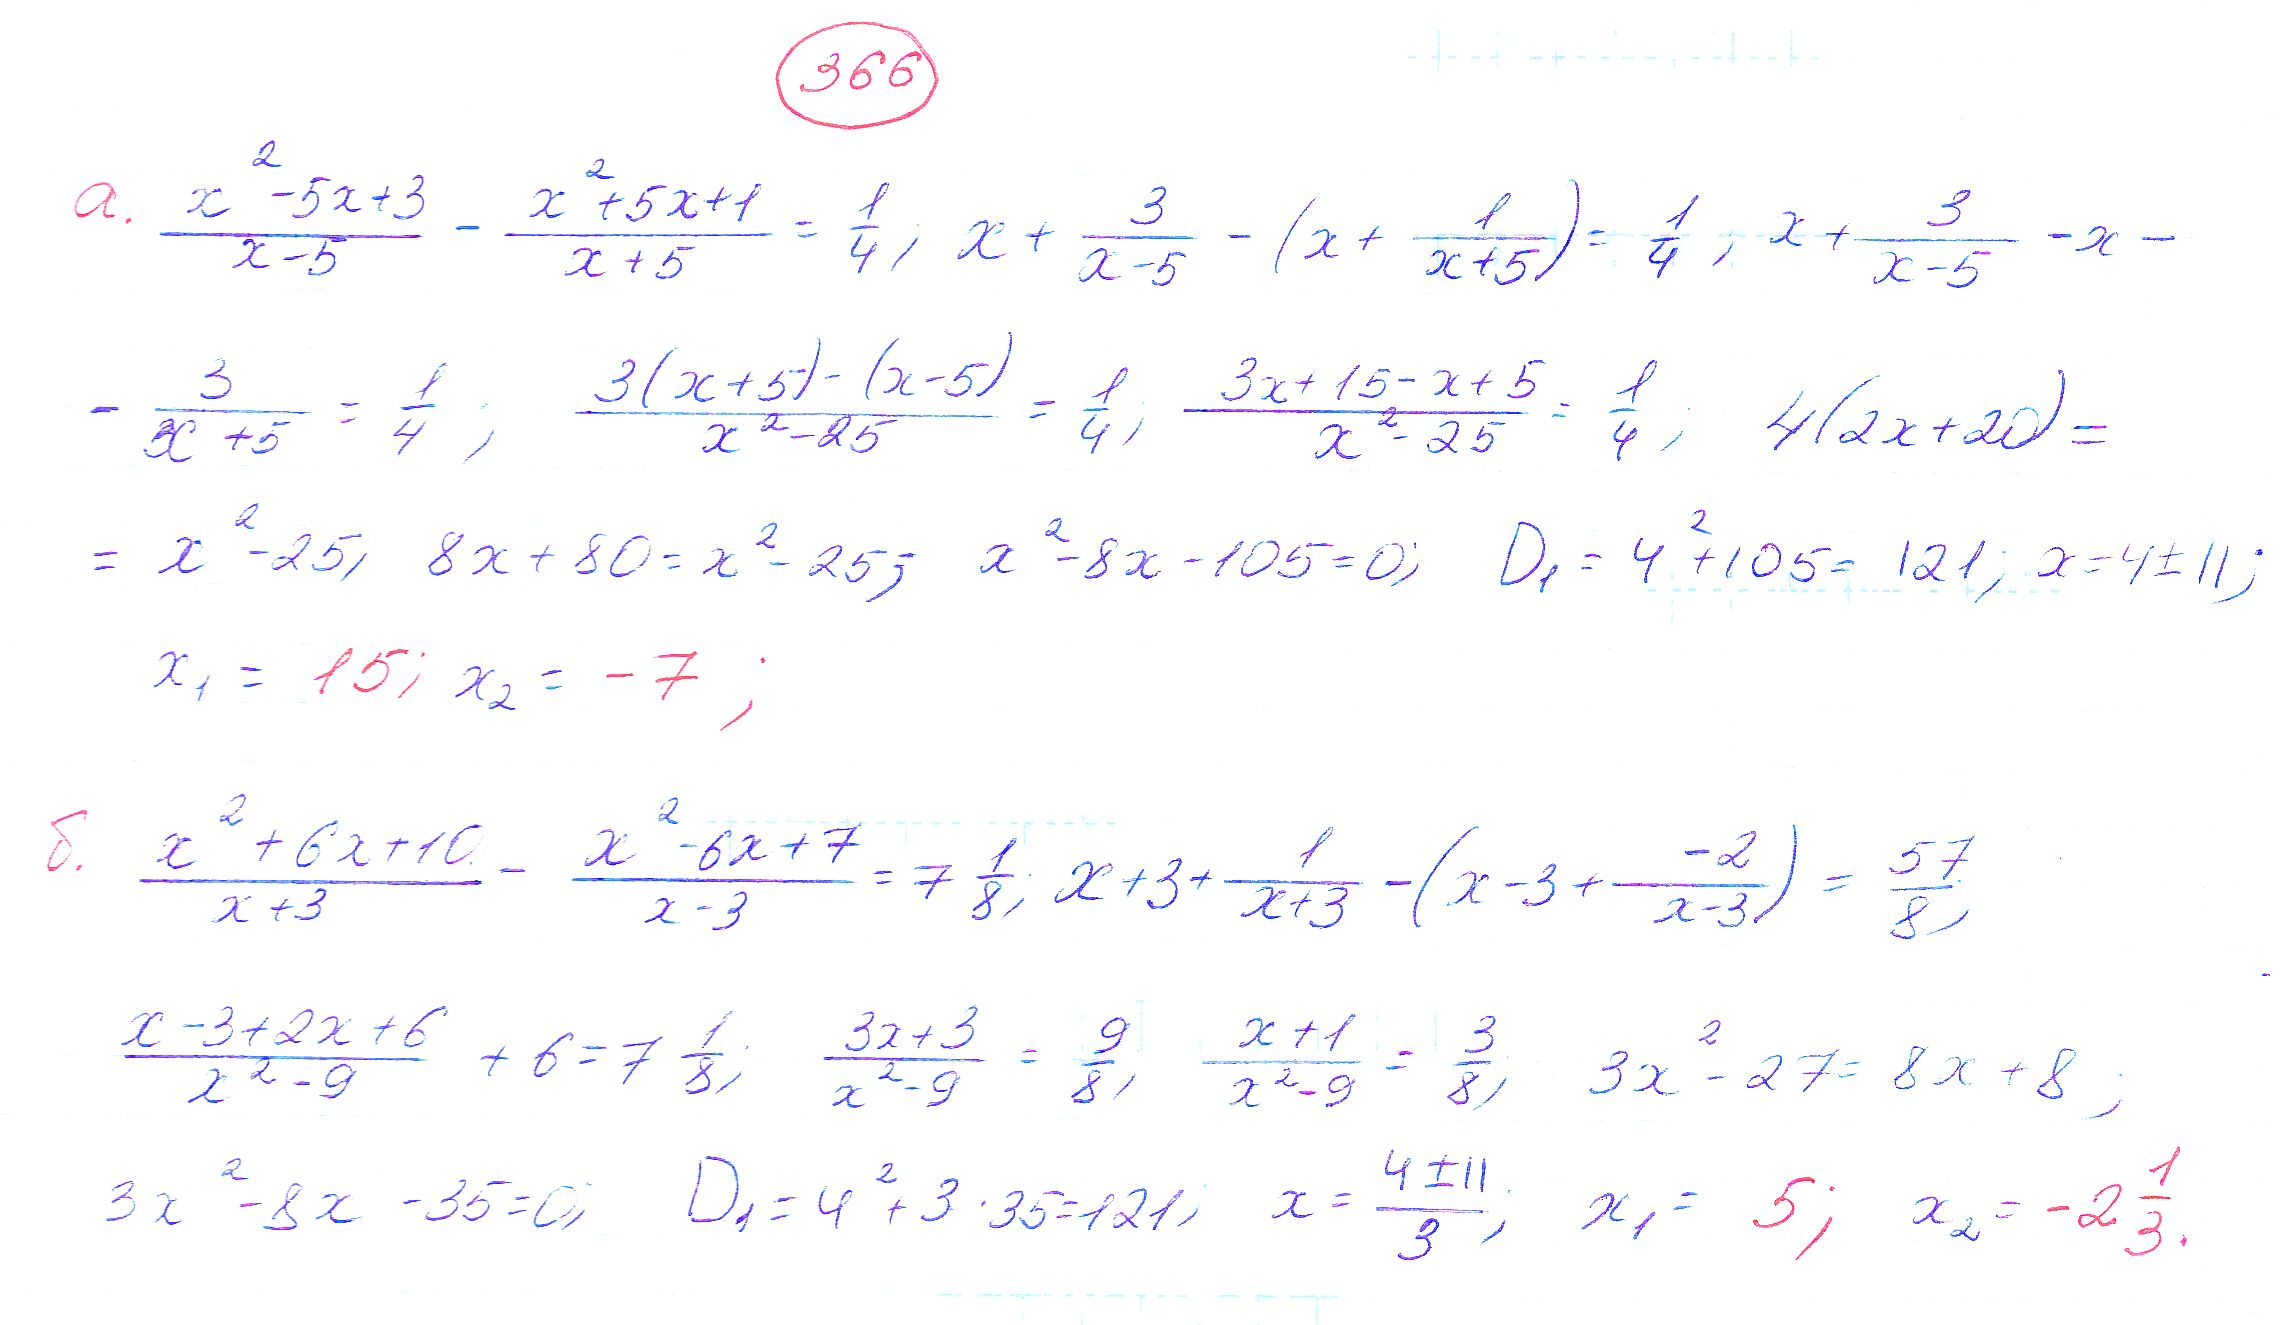 366
а. (x²-5x+3)/(x-5) - (x²+5x+1)/(x+5) = 1/4; x + 3/(x-5) - (x + 1/(x+5)) = 1/4; x + 3/(x-5) - x -
- 3/(x+5) = 1/4; (3(x+5)-(x-5))/(x²-25) = 1/4; (3x+15-x+5)/(x²-25) = 1/4; 4(2x+20) =
= x²-25; 8x+80=x²-25; x²-8x-105=0; D₁ = 4²+105= 121; x=4±11;
x₁ = 15; x₂ = -7;
б. (x²+6x+10)/(x+3) - (x²-6x+7)/(x-3) = 7 1/8; x+3+ 1/(x+3) - (x-3+ (-2)/(x-3)) = 57/8;
(x-3+2x+6)/(x²-9) + 6 = 7 1/8; (3x+3)/(x²-9) = 9/8; (x+1)/(x²-9) = 3/8; 3x²-27= 8x+8;
3x²-8x-35=0; D₁=4²+3·35=121; x= (4±11)/3; x₁= 5; x₂= -2 1/3.